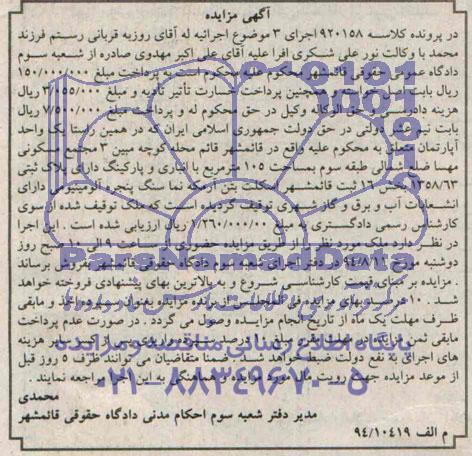 آگهی مزایده
در پرونده کلاسه ۹۲۰۱۵۸ اجرای ۳ موضوع اجرائیه له آقای روزبه قربانی رستم فرزند
محمد با وکالت نور علی شکری افرا علیه آقای علی اکبر مهدوی صادره از شعبه سوم
دادگاه عمومی حقوقی قائمشهر محکوم علیه محکوم است به پرداخت مبلغ ۱۵۰/۰۰۰/۰۰۰
ریال بابت اصل خواسته و همچنین پرداخت خسارت تأثیر تأدیه و مبلغ ۳/۰۵۵/۰۰۰ ریال
هزینه دادرسی و حق الوکاله وکیل در حق محکوم له و پرداخت مبلغ ۷/۵۰۰/۰۰۰ ریال
بابت نیم عشر دولتی در حق دولت جمهوری اسلامی ایران که در همین راستا یک واحد
آپارتمان متعلق به محکوم علیه واقع در قائمشهر قائم محله کوچه مبین ۳ مجتمع مسکونی
مهسا ضلع شمالی طبقه سوم بمساحت ۱۰۵ مترمربع با انباری و پارکینگ دارای پلاک ثبتی
۱۳۵۸/۶۳ بخش ۱۶ ثبت قائمشهر اسکلت بتن آرمکه نما سنگ پنجره آلومینیوم دارای
انشعابات آب و برق و گاز شهری توقیف گردیده است که ملک توقیف شده از سوی
کارشناس رسمی دادگستری به مبلغ ۲/۲۶۰/۰۰۰/۰۰۰ ریال ارزیابی شده است . این اجرا
در نظر دارد ملک مورد نظر را از طریق مزایده حضوری از ساعت ۹ الی ۱۰ صبح روز
دوشنبه مورخ ۹۴/۸/۱۳ در دفتر اجرای شعبه سوم دادگاه حقوقی قائمشهر بفروش برساند
. مزایده بر مبنای قیمت کارشناسی شروع و به بالاترین بهای پیشنهادی فروخته خواهد
شد . ۱۰ درصد بهای مزایده فی المجلس از برنده مزایده بعنوان سپرده اخذ و مابقی
ظرف مهلت یک ماه از تاریخ انجام مزایده وصول می گردد . در صورت عدم پرداخت
مابقی ثمن مزایده در مهلت مقرر مبلغ ۱۰ درصد سپرده واریزی پس از کسر سایر هزینه
های اجرای به نفع دولت ضبط خواهد شد . ضمنا متقاضیان می توانند ظرف ۵ روز قبل
از موعد مزایده جهت رویت مال مورد مزایده و هماهنگی به این اجرا مراجعه نمایند .
محمدی
مدیر دفتر شعبه سوم احکام مدنی دادگاه حقوقی قائمشهر
م الف ۹۴/۱۰۴۱۹
ParsNamadData
پایگاه اطلاع رسانی مناقصه و مزایده
۰۲۱-۸۸۳۴۹۶۷۰-۵